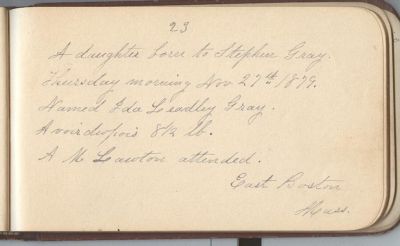 23
A daughter born to Stephen Gray.
Thursday morning Nov 27th 1879.
Named Ida Leadley Gray.
Avoirdupois 8½ lb.
A M Lawton attended.
East Boston
Mass.